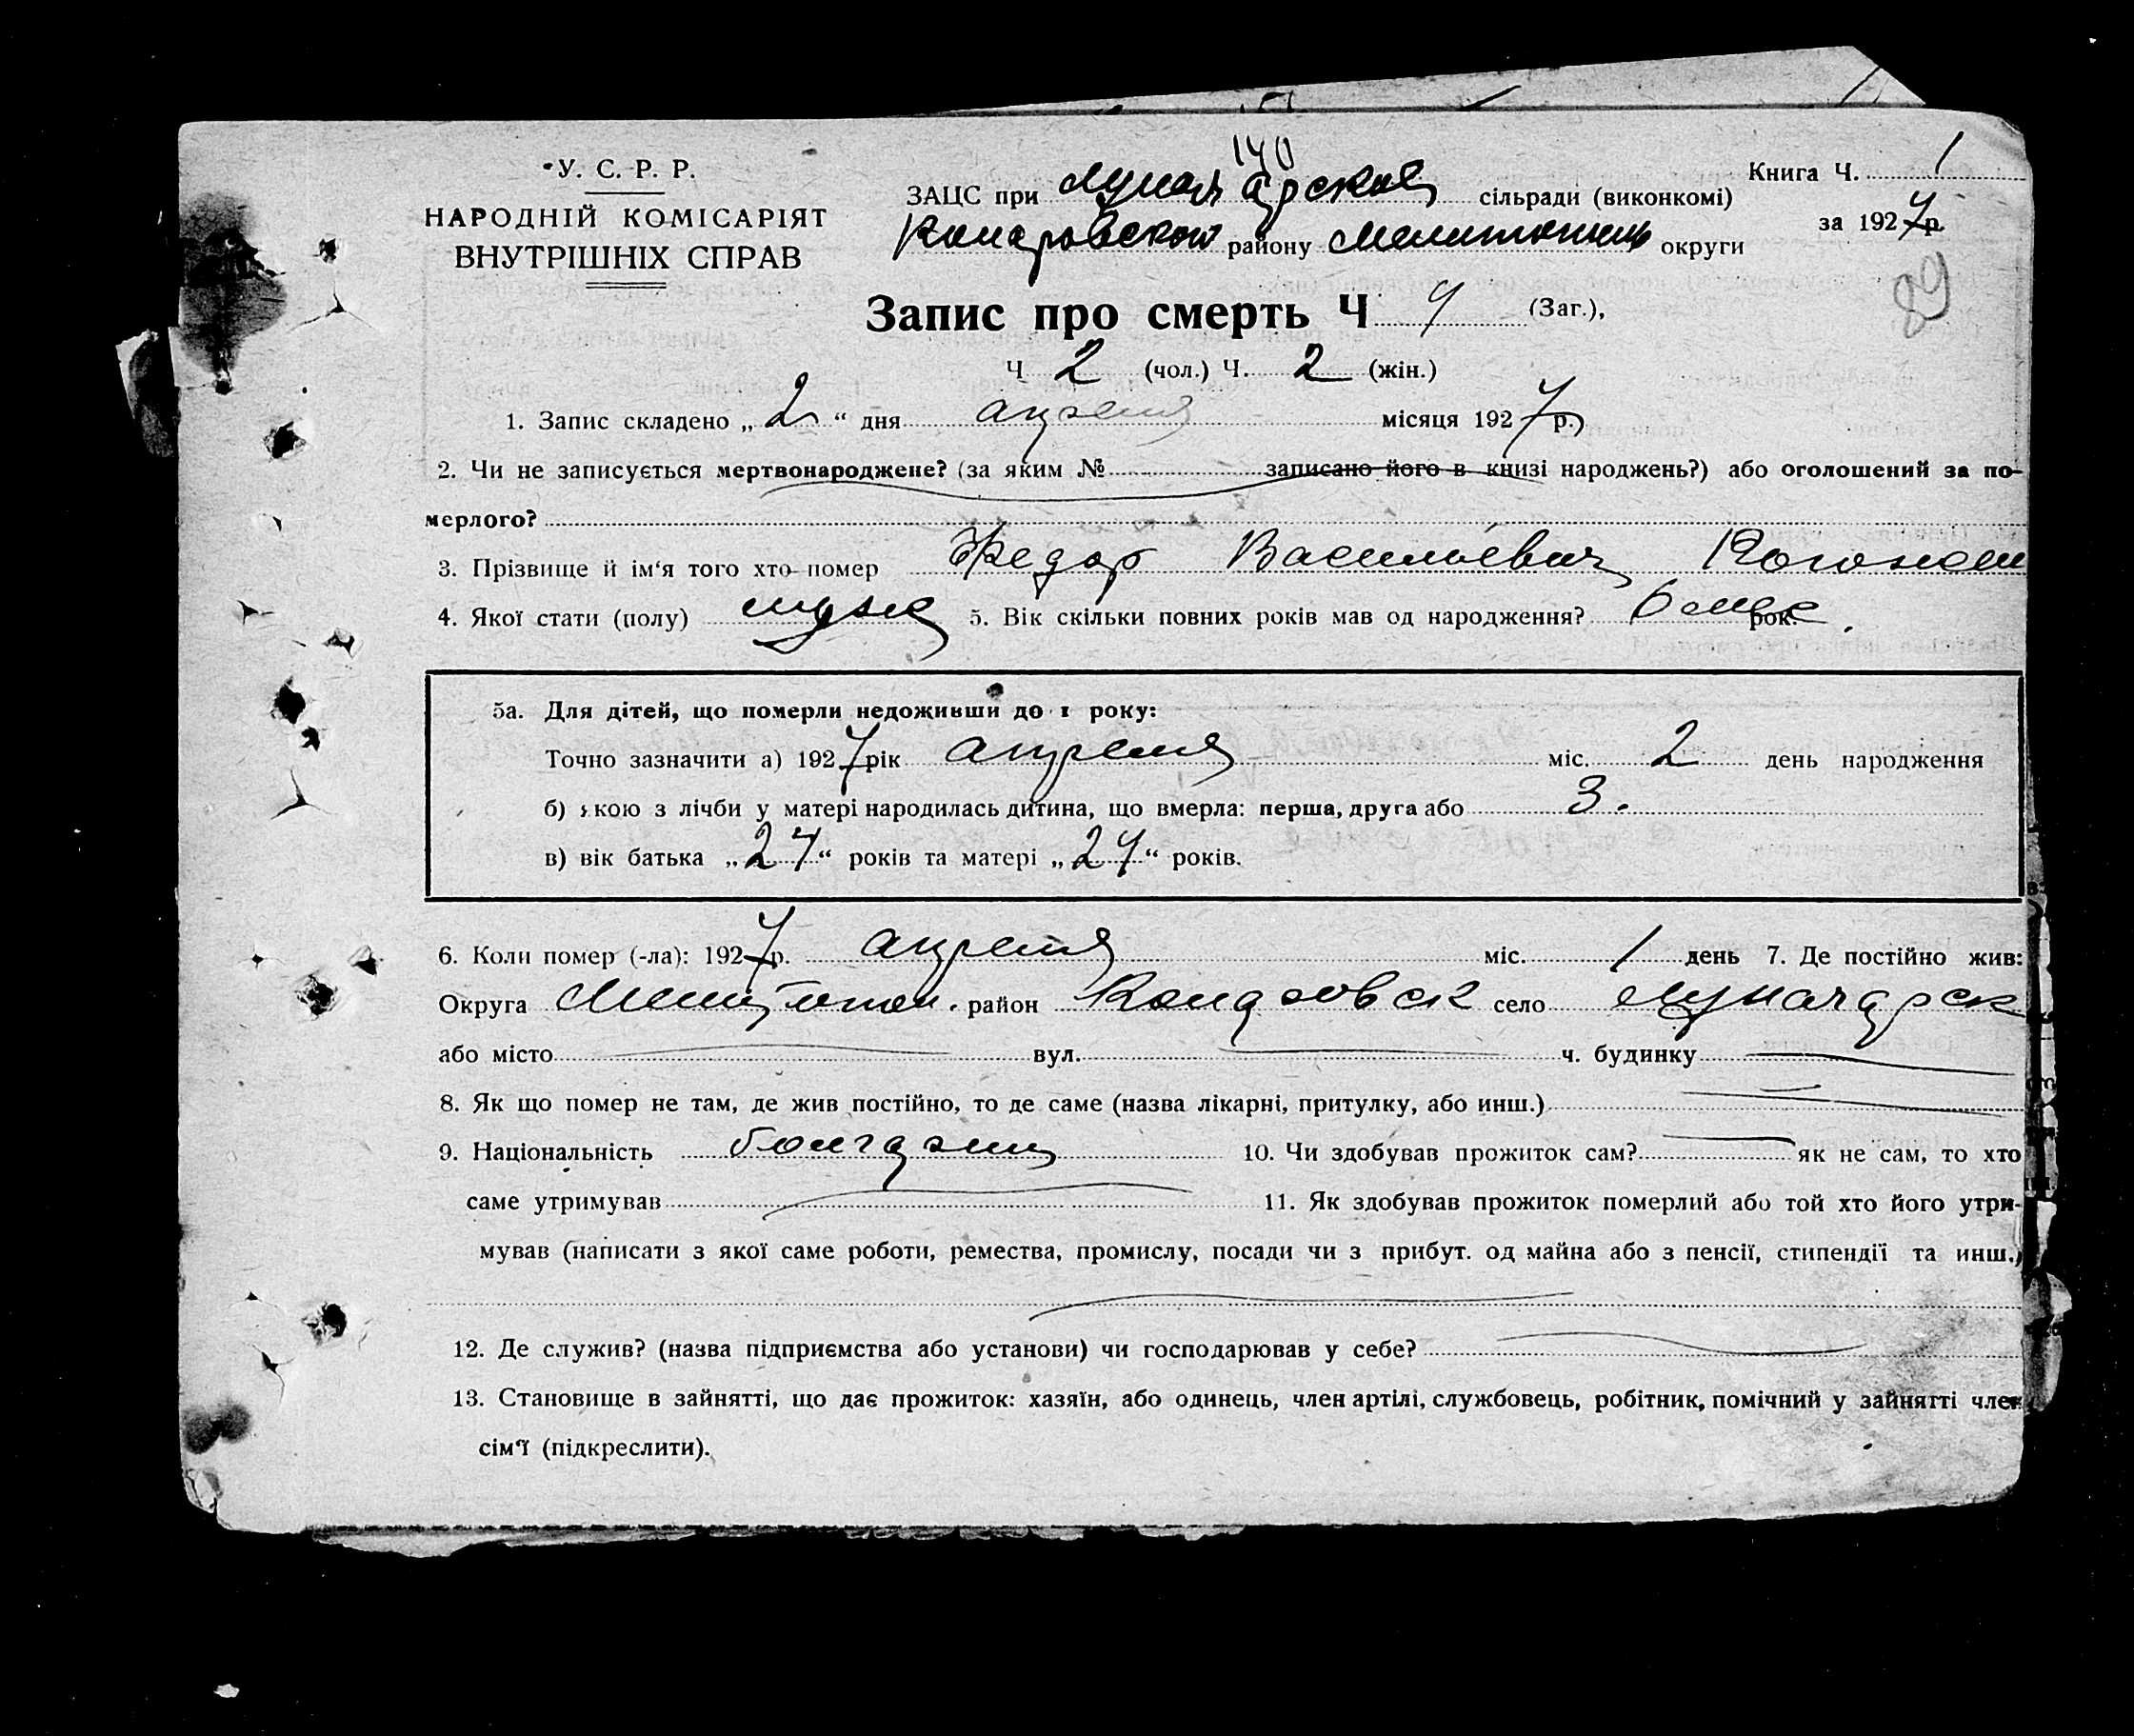 У. С. Р. Р.
НАРОДНІЙ КОМІСАРІЯТ
ВНУТРІШНІХ СПРАВ
140
ЗАЦС при Луначарской сільради (виконкомі)
району Мелитополь округи
Книга Ч. 1
за 1927 р.
89
Запис про смерть Ч 4 (Заг.),
Ч 2 (чол.) Ч. 2 (жін.)
1. Запис складено „ 2 “ дня апреля місяця 1927 р.
2. Чи не записується мертвонароджене? (за яким № записано його в книзі народжень?) або оголошений за по-
мерлого?
3. Прізвище й ім‘я того хто помер Федор Васильевич
4. Якої стати (полу) муж 5. Вік скільки повних років мав од народження? рок.
5а. Для дітей, що померли недоживши до 1 року:
Точно зазначити а) 1927 рік апреля міс. 2 день народження
б) якою з лічби у матері народилась дитина, що вмерла: перша, друга або 3.
в) вік батька „ 27 “ років та матері „ 24 “ років.
6. Коли помер (-ла): 1927 р. апреля міс. 1 день 7. Де постійно жив:
Округа Мелитопол. район село Луначарск
або місто вул. ч. будинку
8. Як що помер не там, де жив постійно, то де саме (назва лікарні, притулку, або инш.)
9. Національність болгарин 10. Чи здобував прожиток сам? як не сам, то хто
саме утримував 11. Як здобував прожиток померлий або той хто його утри-
мував (написати з якої саме роботи, ремества, промислу, посади чи з прибут. од майна або з пенсії, стипендії та инш.)
12. Де служив? (назва підприємства або установи) чи господарював у себе?
13. Становище в зайнятті, що дає прожиток: хазяїн, або одинець, член артілі, службовець, робітник, помічний у зайнятті член
сім‘ї (підкреслити).